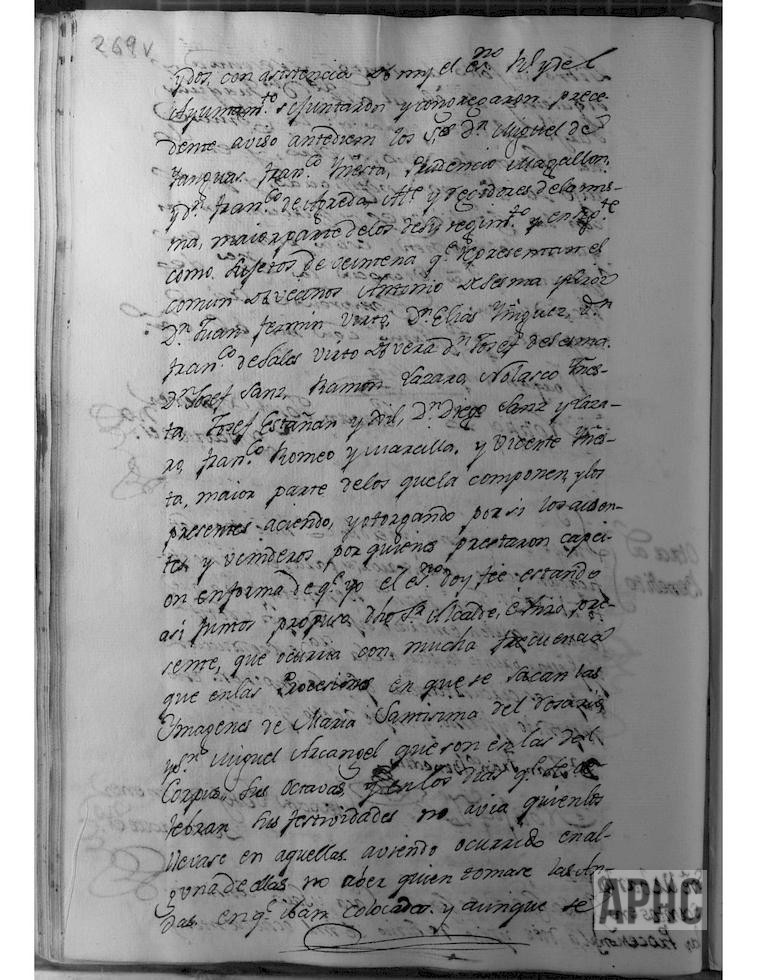 269v
ydos, con asistencia de my el esno Rl. y del
Ayuntamto. se Juntaron y congregaron prece-
dente aviso antediem los Sres. Dn. Miguel de
Yanguas, Franco. Yñesta, Prudencio Magallon,
y Dn. Franco. de Agreda Alte. y regidores de la mis-
ma, maior parte de los de su regimto. y
como Sujetos de veintena qe. representan el
comun de vecinos Antonio de Sesma y
Dn. Juan Fermin Virto, Dn. Elias Yñiguez, Dn.
Franco. de Salas Virto de Vera Dn. Josef de Sesma,
Dn. Josef Sanz, Ramon Lazaro, Nolasco Ynes-
ta, Josef Estañan y Gil, Dn. Diego Sanz y Laza-
ro, Franco. Romeo y Marcilla, y Vicente Yñes-
ta, maior parte de los que la componen, y los
presentes aciendo, y otorgando por si los ausen-
tes y venideros por quienes prestaron capci-
on en forma de qe. yo el esno. doy fee estando
asi Juntos propuso dho Sr. Alcalde, é hizo pre-
sente, que ocurria con mucha frecuencia
que en las Procesiones en que se sacan las
Ymagenes de Maria Santisima del Rosario,
y Sn. Miguel Arcangel que son en las del
Corpus, sus octavas y en los dias qe. se ce-
lebran sus festividades no avia quien los
llevase en aquellas aviendo ocurrido en al-
guna de ellas no aber quien tomase las An-
das en qe. iban colocados. y aunque se
APHC